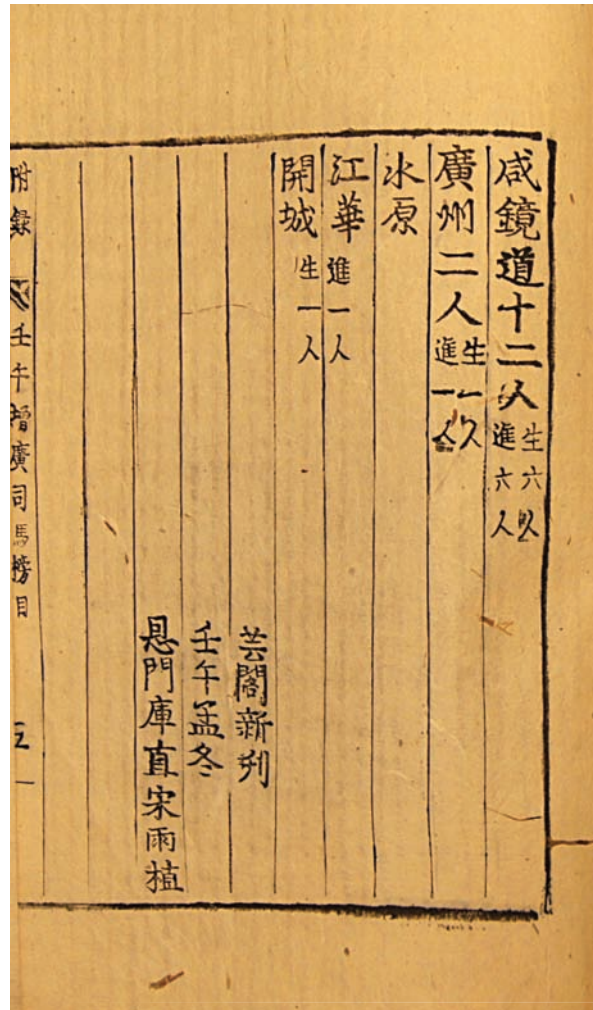 咸鏡道十二人 生六人 進六人
廣州二人 生一人 進一人
水原
江華 進一人
開城 生一人
芸閣新刋
壬午孟冬
恩門庫直宋雨植
附錄 壬午增廣司馬榜目 五